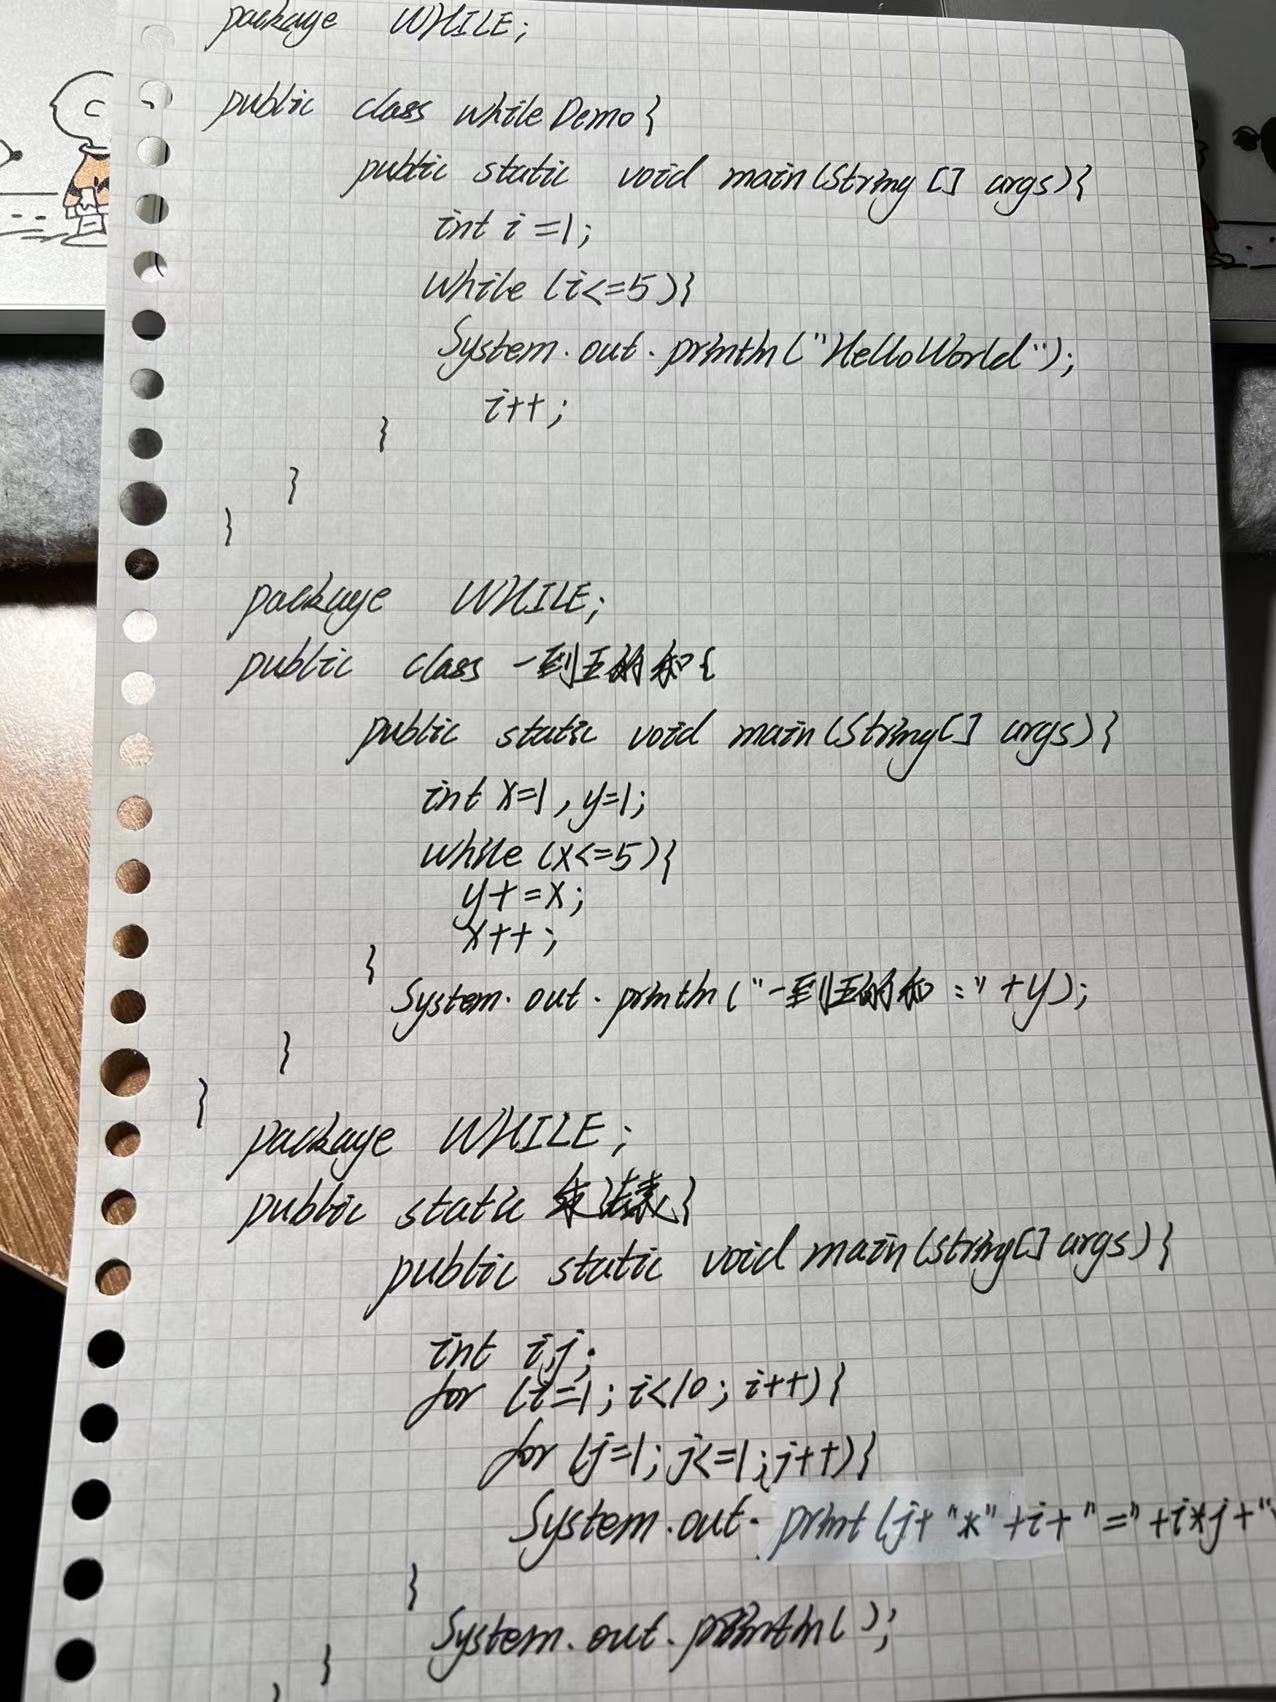 package WHILE;
public class whileDemo{
public static void main(String[] args){
int i=1;
while (i<=5){
System.out.println("HelloWorld");
i++;
}
}
}
package WHILE;
public class 一到五的和{
public static void main(String[] args){
int x=1,y=1;
while (x<=5){
y+=x;
x++;
}
System.out.println("一到五的和:"+y);
}
}
package WHILE;
public static 乘法表{
public static void main(string[] args){
int i,j;
for (i=1; i<10; i++){
for (j=1; j<=1; j++){
System.out.print(j+"*"+i+"="+i*j+"
}
System.out.println();
}